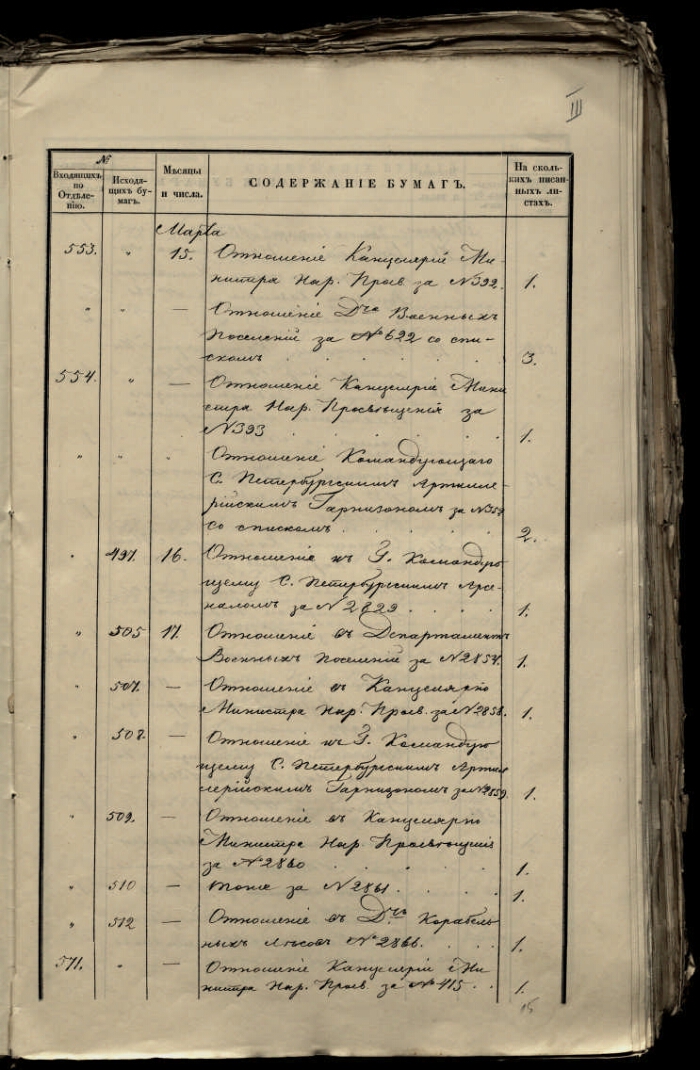 III
№
Входящихъ по Отдѣле- нію.
Исходя- щихъ бу- магъ.
Мѣсяцы и числа.
СОДЕРЖАНІЕ БУМАГЪ.
На сколь- кихъ писан- ныхъ ли- стахъ.
Марта
553. " 15. Отношеніе Канцеляріи Ми-
нистра Нар. Просв за №392. 1.
" " — Отношеніе Дта Военныхъ
Поселеній за №622 со спи-
скомъ . . . . . 3.
554. " — Отношеніе Канцеляріи Мини
стра Нар. Просвѣщенія за
№393 . . . . . 1.
" " " Отношеніе Командующаго
С. Петербургскимъ Артилле-
рійскимъ Гарнизономъ за №359
со спискомъ . . . . 2.
" 497. 16. Отношеніе къ Г. Командую
щему С. Петербургскимъ Арсе-
наломъ за №2829 . . . 1.
" 505 17. Отношеніе въ Департаментъ
Военныхъ Поселеній за №2854. 1.
" 507. — Отношеніе въ Канцелярію
Министра Нар. Просв. за №2858. 1.
" 508. — Отношеніе къ Г. Командую
щему С. Петербургскимъ Артил
лерійскимъ Гарнизономъ за №2859. 1.
" 509. — Отношеніе въ Канцелярію
Министра Нар. Просвѣщенія
за №2860 . . . . 1.
" 510 — тоже за №2861. . . . 1.
" 512 — Отношеніе въ Дтъ Корабель
ныхъ Лѣсовъ №2866. . . 1.
571. " — Отношеніе Канцеляріи Ми
нистра Нар. Просв. за №415 . . 1.
15